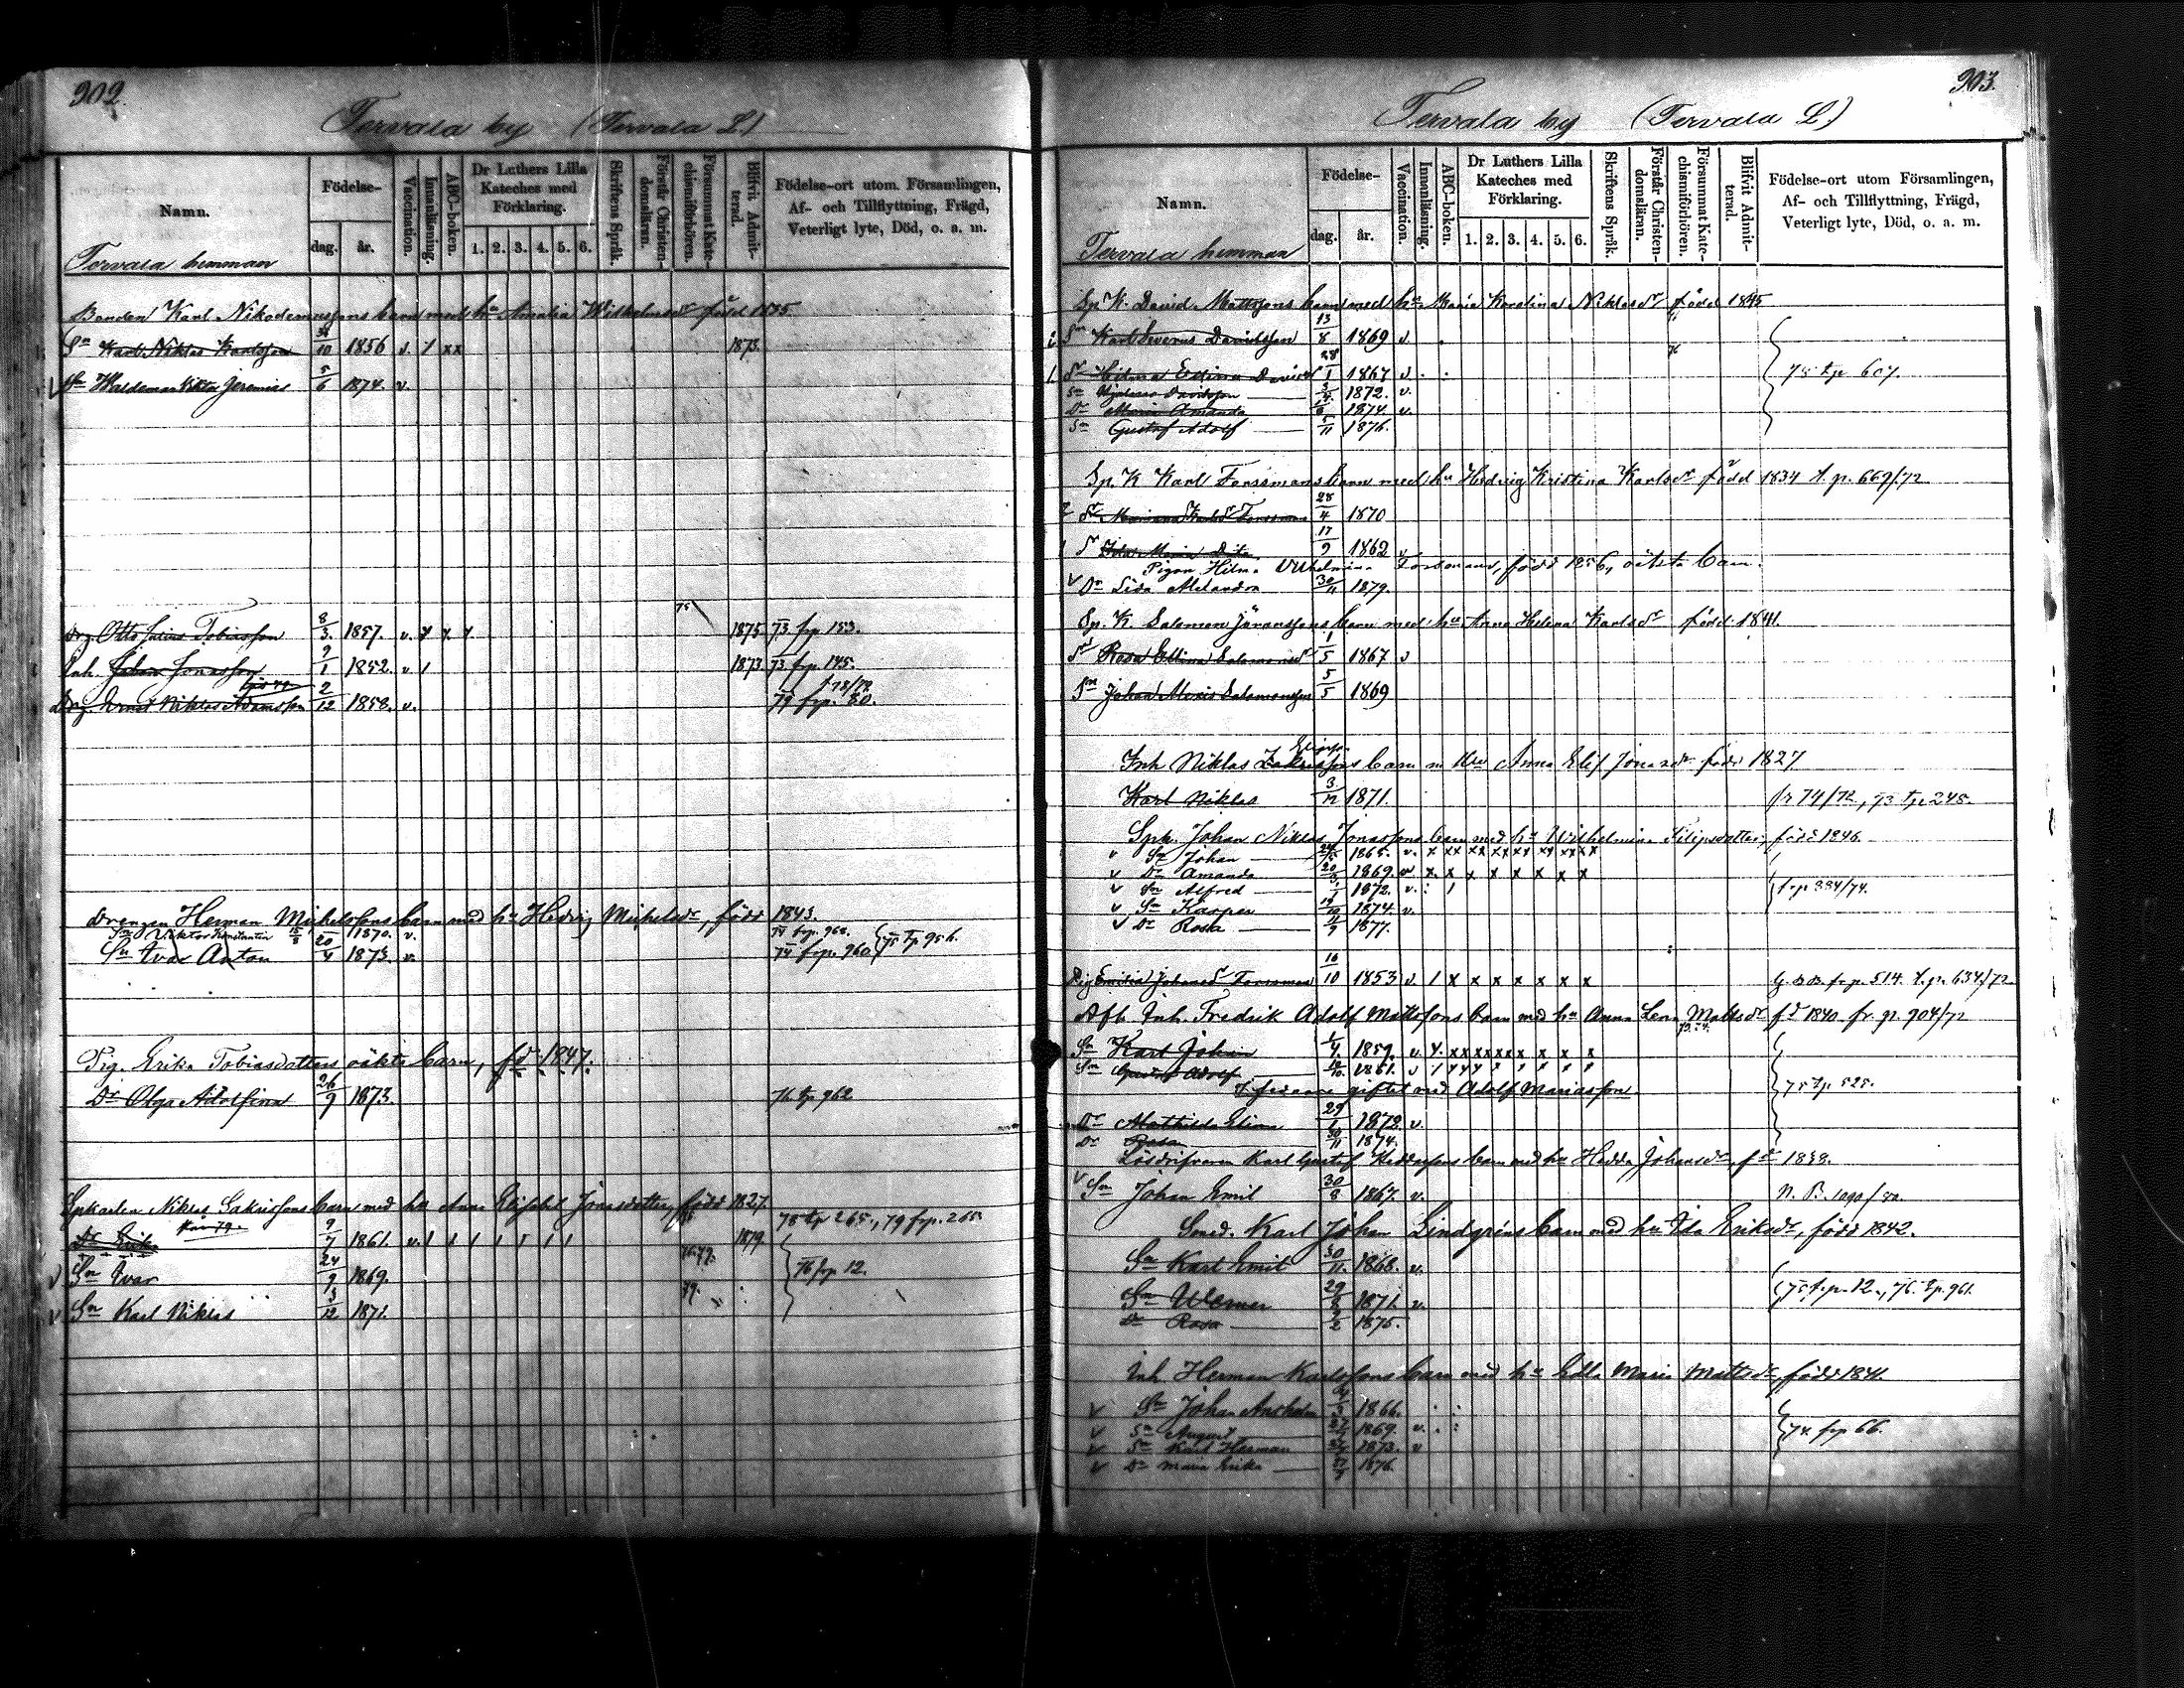 902.
Tervala by (Tervala L.)
Namn.
Födelse-
dag.
år.
Vaccination.
Innanläsning.
ABC-boken.
Dr Luthers Lilla Kateches med Förklaring.
1. 2. 3. 4. 5. 6.
Skriftens Språk.
Förstår Christen-domsläran.
Försummat Kate-chismiförhören.
Blifvit Admit-terad.
Födelse-ort utom. Församlingen,
Af- och Tillflyttning, Frägd,
Veterligt lyte, Död, o. a. m.
Tervala hemman
Bonden Karl Nikodemussons barn med hu Amalia Wilhelmsdr född 1835
Sn Karl Niklas Karlsson 10 1856 v. / xx 1873.
v Sn Waldemar Viktor Jeremias 5/6 1874. v.
Drg. Otto Julius Tobiasson 8/3 1857. v. x x x 75 1875 73 frp 153.
Inh. Johan Jonasson 9/1 1852. v / 1873 73 frp. 145.
Drg. Ernst Niklas Adamsson 2/12 1858. v. 79 frp. 80.
Drengen Herman Mickelssons barn med hu Hedvig Mickelsdr, född 1843.
Sn Viktor Konstantin 15/8 1870. v. 74 frp. 960.
Sn Ivar Anton 20/4 1873. v. 74 frp. 960 75 tp 956.
Pig. Erika Tobiasdotters oäkta barn, fd 1847.
Dr Olga Adolfina 26/9 1873. 76 tp 962
Spkarlen Niklas Sakrissons barn med hu Anna Elisabet Jonasdotter, född 1827.
Dr Erika 9/7 1861. v. / / / / / / / / 1879. 78 tp 265., 79 frp. 265
v Sn Ivar 24/9 1869. 76 frp 12.
v Sn Karl Niklas 3/12 1871. 79.
903.
Tervala by (Tervala L.)
Namn.
Födelse-
dag.
år.
Vaccination.
Innanläsning.
ABC-boken.
Dr Luthers Lilla Kateches med Förklaring.
1. 2. 3. 4. 5. 6.
Skriftens Språk.
Förstår Christen-domsläran.
Försummat Kate-chismiförhören.
Blifvit Admit-terad.
Födelse-ort utom Församlingen,
Af- och Tillflyttning, Frägd,
Veterligt lyte, Död, o. a. m.
Tervala hemman
Sp. K. David Mattssons barn med hu Maria Karolina Niklasdr född 1845
2 Sn Karl Severus Davidsson 13/8 1869 v.
1 Dr Hilma Edlina Davidsdr 28/1 1867 v 75 tp 607.
Sn Hjalmar Davidsson 3/4 1872. v.
Dr Maria Amanda 1874. v.
Sn Gustaf Adolf 5/11 1876.
Sp. K Karl Forssmans barn med hu Hedvig Kristina Karlsdr född 1834 t. p. 669/72
2 Dr Mariana Karlsdr Forssman 28/4 1870
1 Dr Ida Maria 17/9 1862 v
Pigan Hilma Wilhelmina Forssmans, född 1856, oäkta barn.
v Dr Lida Alexandra 30/11 1879.
Sp. K. Salomon Jöranssons barn med hu Anna Helena Karlsdr född 1841.
Dr Rosa Ellina Salomonsdr 1/5 1867 v
Sn Johan Alexis Salomonsson 5/5 1869
Inh Niklas Zakrissons barn m hu Anna Elis Jonasdr född 1827
Karl Niklas 3/12 1871. fr 74/72, 73 tp. 248.
Spk. Johan Niklas Jonassons barn med hu Wilhelmina Filipsdotter, född 1846.
v Sn Johan 1865. v. x xx xx xx xx xx xx xx
v Dr Amanda 20/3 1869. v. x x x x x x x x
v Sn Alfred 1872. v. frp 334/74.
v Sn Kasper 19/10 1874. v.
v Dr Rosa 1877.
Pig Emilia Johansdr Forssman 16/10 1853 v. / x x x x x x x G.B.B. fr p. 514. t. p. 634/72
Afl. Inh. Fredrik Adolf Mattssons barn med hu Anna Lena Mattsdr fd 1840 fr. p. 904/72
Sn Karl Johan 1859. v. x. xx xx xx x x x x
Sn Gustaf Adolf 1861. v / x x x x x x x x
Efterm giftet med Adolf Mariasson 75 tp. 525.
Dr Mathilda Elina 29/1 1872. v.
Dr Rosa 30/11 1874.
Lösdrifvaren Karl Gustaf Heddassons barn med hu Hedda Johansdr, fd 1838.
v Sn Johan Emil 30/8 1867. v. N. B. 1090/80.
Smed. Karl Johan Lindgrens barn med hu Ida Eriksdr, född 1842.
Sn Karl Emil 30/11. 1868. v.
Sn Werner 29/8 1871. v. 75 frp. 12., 76. tp. 961.
Dr Rosa 9/2 1875.
Inh Herman Karlssons barn med hu Edla Maria Mattsdr, född 1841.
v Sn Johan Anshelm 1866.
v Sn August 1869. v. 74 frp 66.
v Sn Karl Herman 1873. v
v Dr Maria Erika 1876.